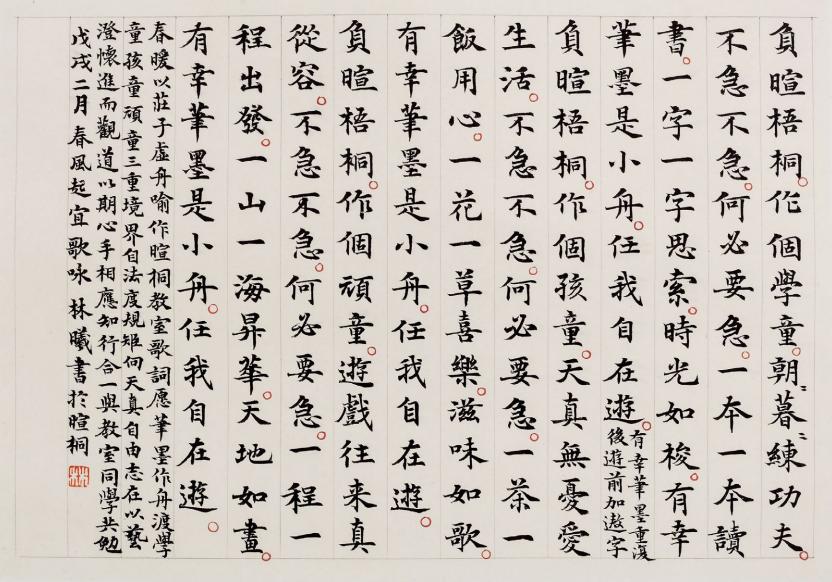 負暄梧桐。作個學童。朝〻暮〻練功夫。
不急不急。何必要急。一本一本讀
書。一字一字思索。時光如梭。有幸
筆墨是小舟。任我自在遊。
有幸筆墨重復
後遊前加遨字
負暄梧桐。作個孩童。天真無憂愛
生活。不急不急。何必要急。一茶一
飯用心。一花一草喜樂。滋味如歌。
有幸筆墨是小舟。任我自在遊。
負暄梧桐。作個頑童。遊戲往来真
從容。不急不急。何必要急。一程一
程出發。一山一海昇華。天地如畫。
有幸筆墨是小舟。任我自在遊。
春暖以莊子虛舟喻作暄桐教室歌詞愿筆墨作舟渡學
童孩童頑童三重境界自法度規矩向天真自由志在以藝
澄懷進而觀道以期心手相應知行合一與教室同學共勉
戊戌二月春風起宜歌咏林曦書於暄桐